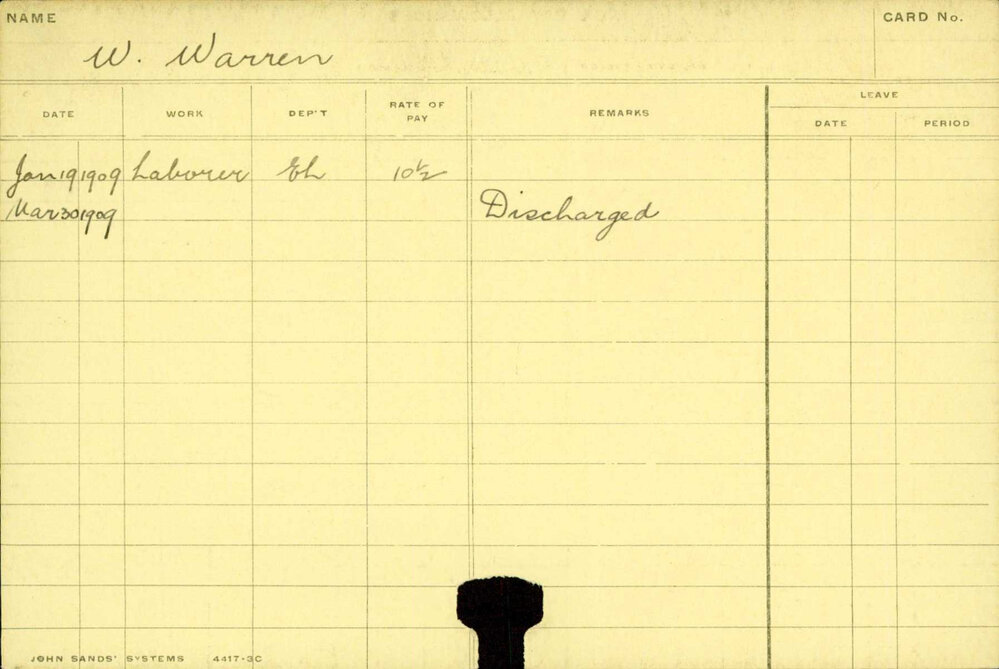 NAME
CARD No.
W. Warren
DATE WORK DEP'T RATE OF PAY REMARKS LEAVE
DATE PERIOD
Jan 19 1909 Laborer Eh 10½
Mar 30 1909 Discharged
JOHN SANDS' SYSTEMS 4417-3C